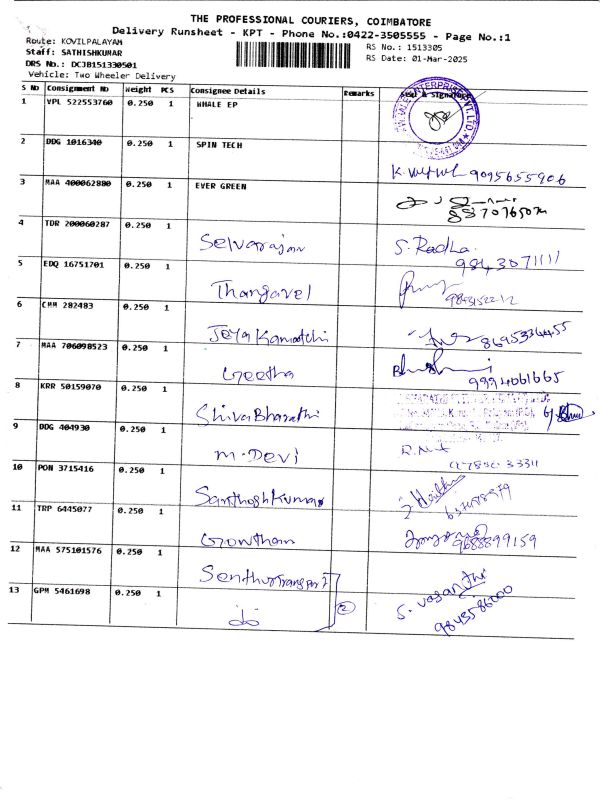 THE PROFESSIONAL COURIERS, COIMBATORE
Delivery Runsheet - KPT - Phone No.:0422-3505555 - Page No.:1
Route: KOVILPALAYAM
Staff: SATHISHKUMAR
DRS No.: DCJB151330501
Vehicle: Two Wheeler Delivery
RS No.: 1513305
RS Date: 01-Mar-2025
S No Consignment No Weight PCS Consignee Details Remarks Seal & Signature
1 VPL 522553760 0.250 1 WHALE EP
2 DDG 1016340 0.250 1 SPIN TECH
9095655906
3 MAA 400062880 0.250 1 EVER GREEN
4 TDR 200060287 0.250 1
Selvarajan S. Radha
9843071111
5 EDQ 16751701 0.250 1
Thangavel
6 CHM 282483 0.250 1
Jeya Kamatchi 8695334455
7 MAA 706098523 0.250 1
Geetha 9994061665
8 KRR 50159070 0.250 1
Shiva Bharathi
9 DDG 404930 0.250 1
M. Devi
10 PON 3715416 0.250 1
Santhosh Kumar
11 TRP 6445077 0.250 1
Gowtham 9688899159
12 MAA 575101576 0.250 1
Senthur Transport
13 GPM 5461698 0.250 1
do 2 S. Vasanthi
9843586000